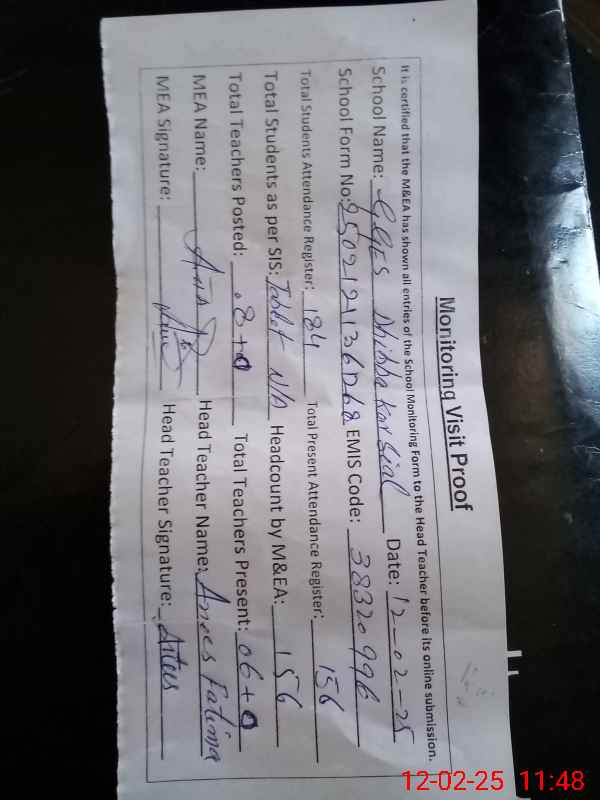 Monitoring Visit Proof
It is certified that the M&EA has shown all entries of the School Monitoring Form to the Head Teacher before its online submission.
School Name: GGES Dhibba Karsial Date: 12-02-25
School Form No: EMIS Code: 38320996
Total Students Attendance Register: 184 Total Present Attendance Register: 156
Total Students as per SIS: Tablet N/A Headcount by M&EA: 156
Total Teachers Posted: 08+0 Total Teachers Present: 06+0
MEA Name: Head Teacher Name: Anees Fatima
MEA Signature: Head Teacher Signature: Anees
12-02-25 11:48